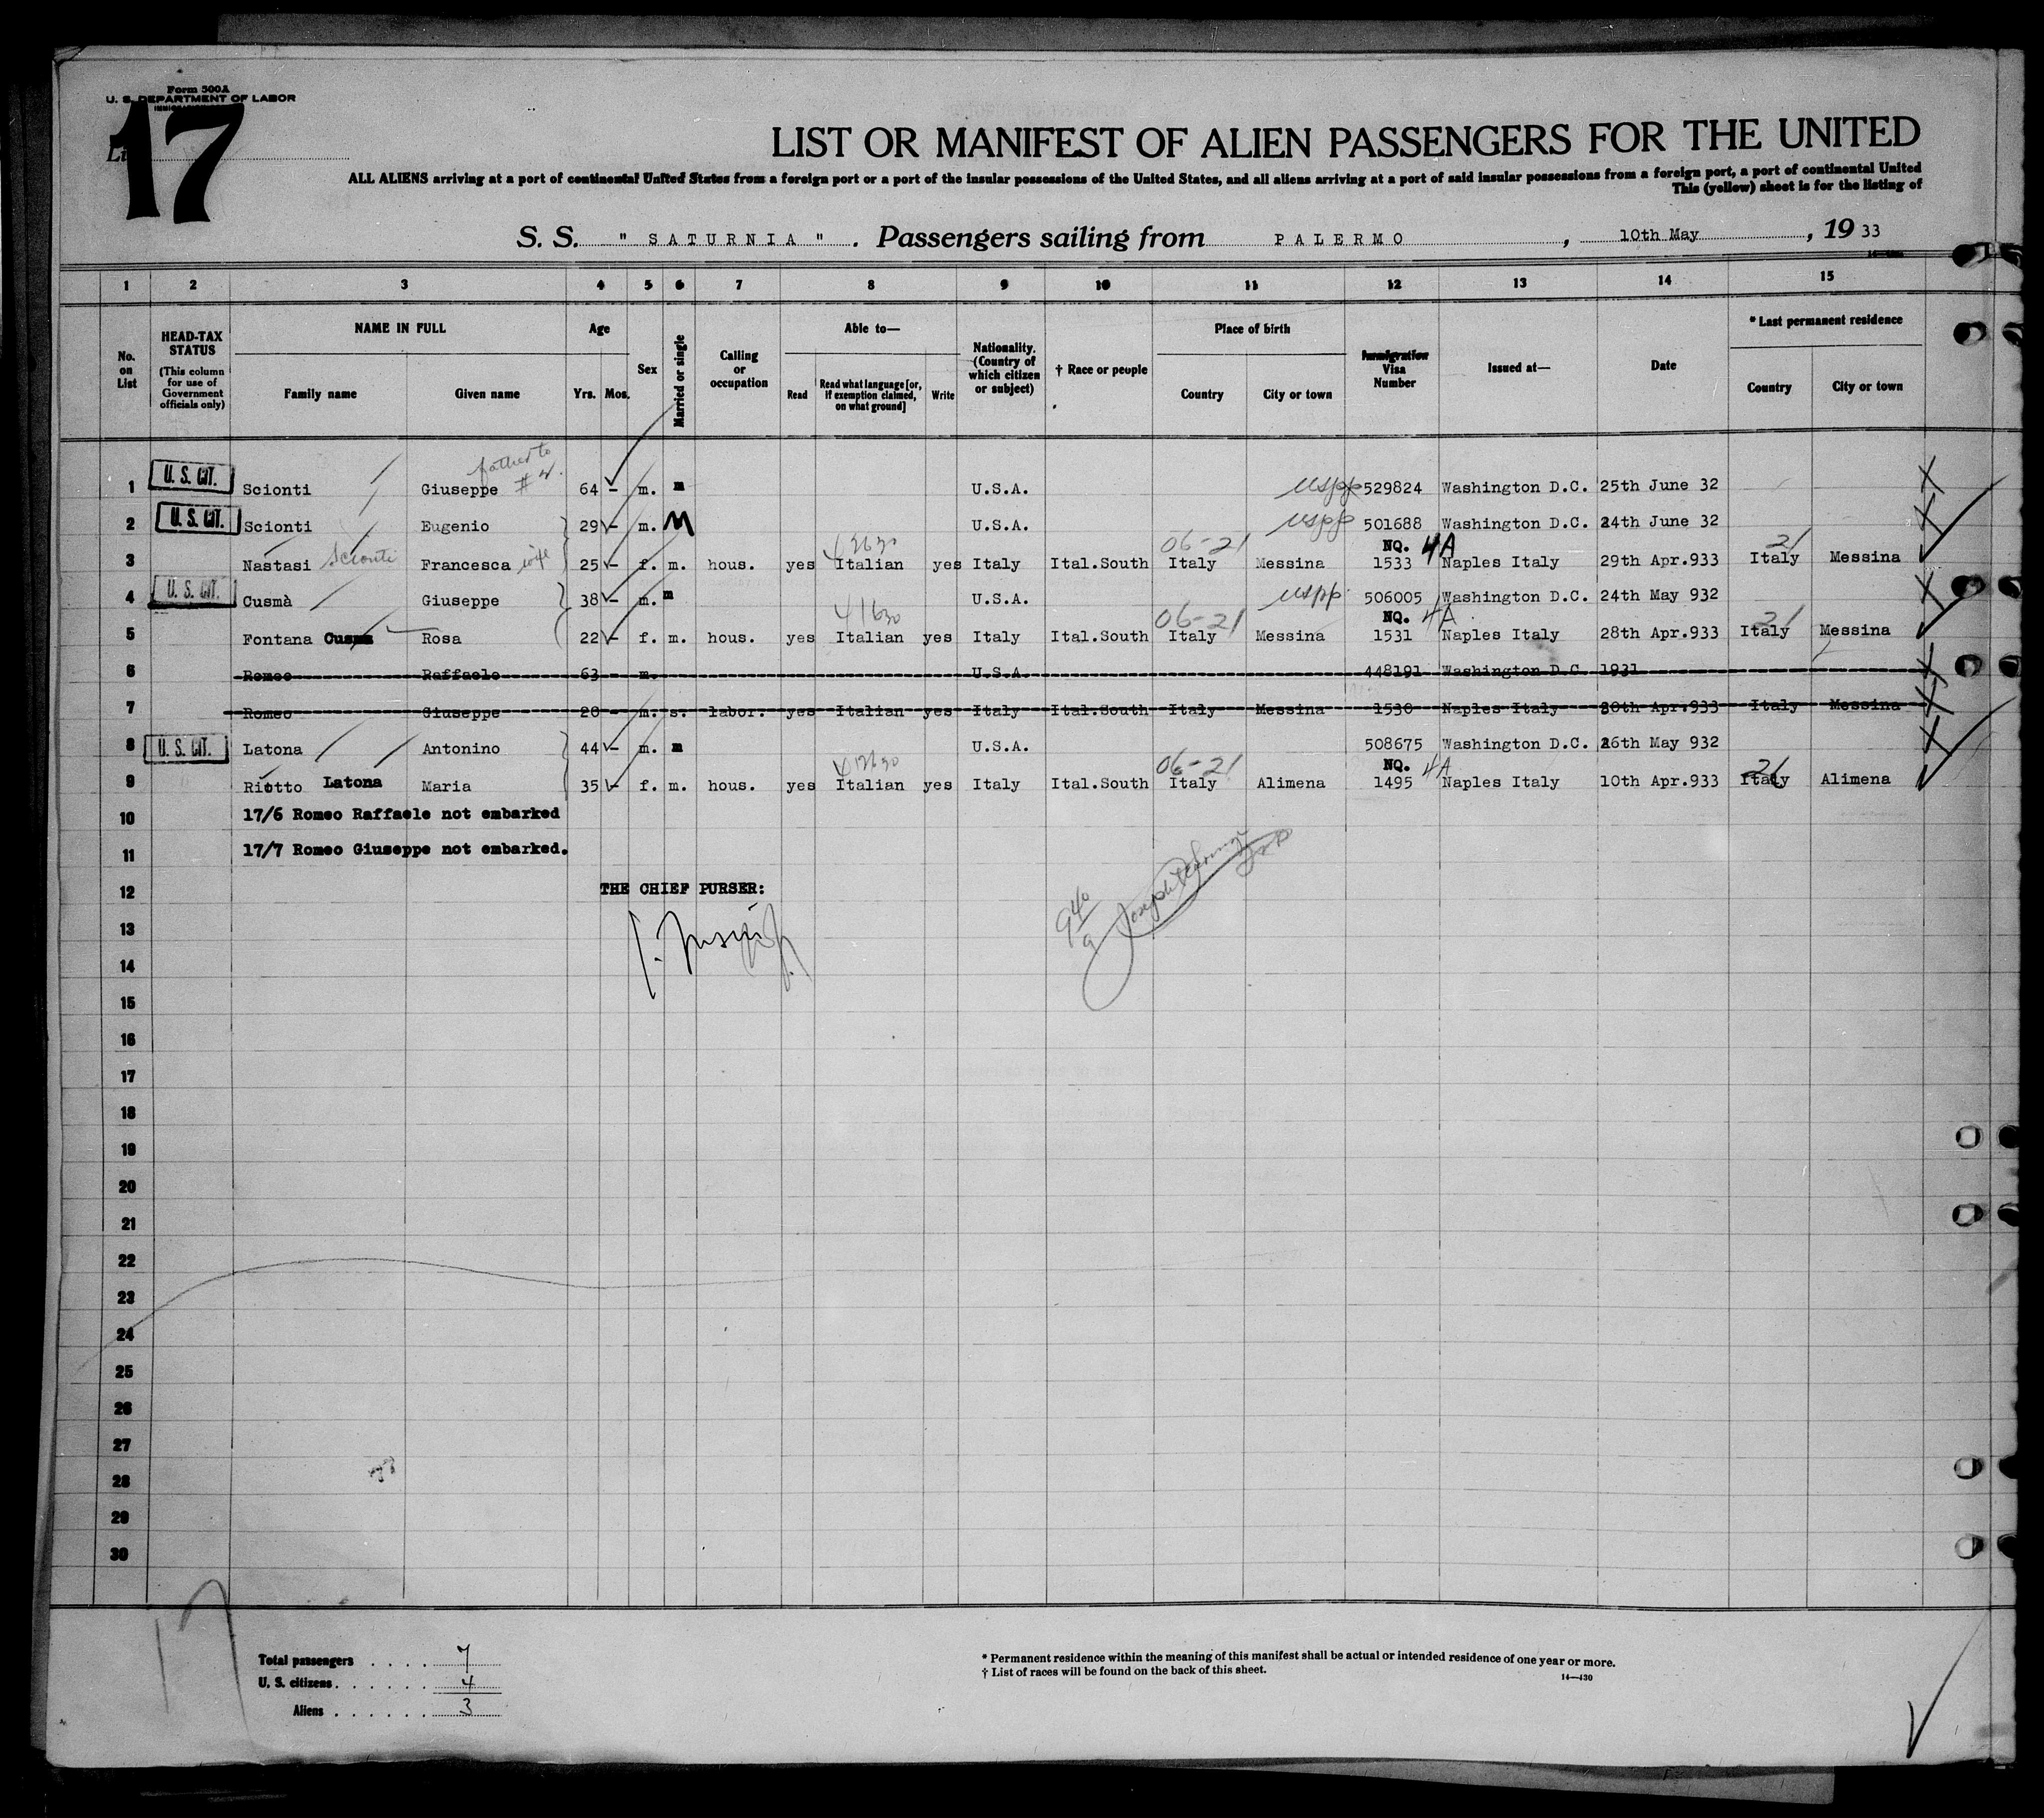 Form 500A
U. S. DEPARTMENT OF LABOR
17
LIST OR MANIFEST OF ALIEN PASSENGERS FOR THE UNITED
ALL ALIENS arriving at a port of continental United States from a foreign port or a port of the insular possessions of the United States, and all aliens arriving at a port of said insular possessions from a foreign port, a port of continental United
This (yellow) sheet is for the listing of
S. S. " SATURNIA " . Passengers sailing from PALERMO , 10th May , 19 33
1 2 3 4 5 6 7 8 9 10 11 12 13 14 15
No. on List
HEAD-TAX STATUS (This column for use of Government officials only)
NAME IN FULL Family name Given name
Age Yrs. Mos.
Sex
Married or single
Calling or occupation
Able to— Read Read what language [or, if exemption claimed, on what ground] Write
Nationality. (Country of which citizen or subject)
† Race or people
Place of birth Country City or town
Immigration Visa Number
Issued at—
Date
* Last permanent residence Country City or town
father to
1 U. S. CIT. Scionti Giuseppe # 2. 64 - m. m U.S.A. uspp 529824 Washington D.C. 25th June 32
2 U. S. CIT. Scionti Eugenio 29 - m. M U.S.A. uspp 501688 Washington D.C. 24th June 32
06-21 NQ. 4A 21
3 Nastasi Scionti Francesca wife 25 - f. m. hous. yes Italian yes Italy Ital.South Italy Messina 1533 Naples Italy 29th Apr.933 Italy Messina
4 U. S. CIT. Cusmà Giuseppe 38 - m. m U.S.A. uspp 506005 Washington D.C. 24th May 932
06-21 NQ. 4A 21
5 Fontana Cusma Rosa 22 - f. m. hous. yes Italian yes Italy Ital.South Italy Messina 1531 Naples Italy 28th Apr.933 Italy Messina
6 Romeo Raffaele 63 - m. U.S.A. 448191 Washington D.C 1931
7 Romeo Giuseppe 20 - m. s. labor. yes Italian yes Italy Ital.South Italy Messina 1530 Naples Italy 20th Apr.933 Italy Messina
8 U. S. CIT. Latona Antonino 44 - m. m U.S.A. 508675 Washington D.C. 26th May 932
06-21 NQ. 4A 21
9 Riotto Latona Maria 35 - f. m. hous. yes Italian yes Italy Ital.South Italy Alimena 1495 Naples Italy 10th Apr.933 Italy Alimena
10 17/6 Romeo Raffaele not embarked
11 17/7 Romeo Giuseppe not embarked.
12 THE CHIEF PURSER:
13
14
15
16
17
18
19
20
21
22
23
24
25
26
27
28
29
30
17
Total passengers . . . . 7
U. S. citizens . . . . . . 4
Aliens . . . . . . 3
* Permanent residence within the meaning of this manifest shall be actual or intended residence of one year or more.
† List of races will be found on the back of this sheet.
14—430